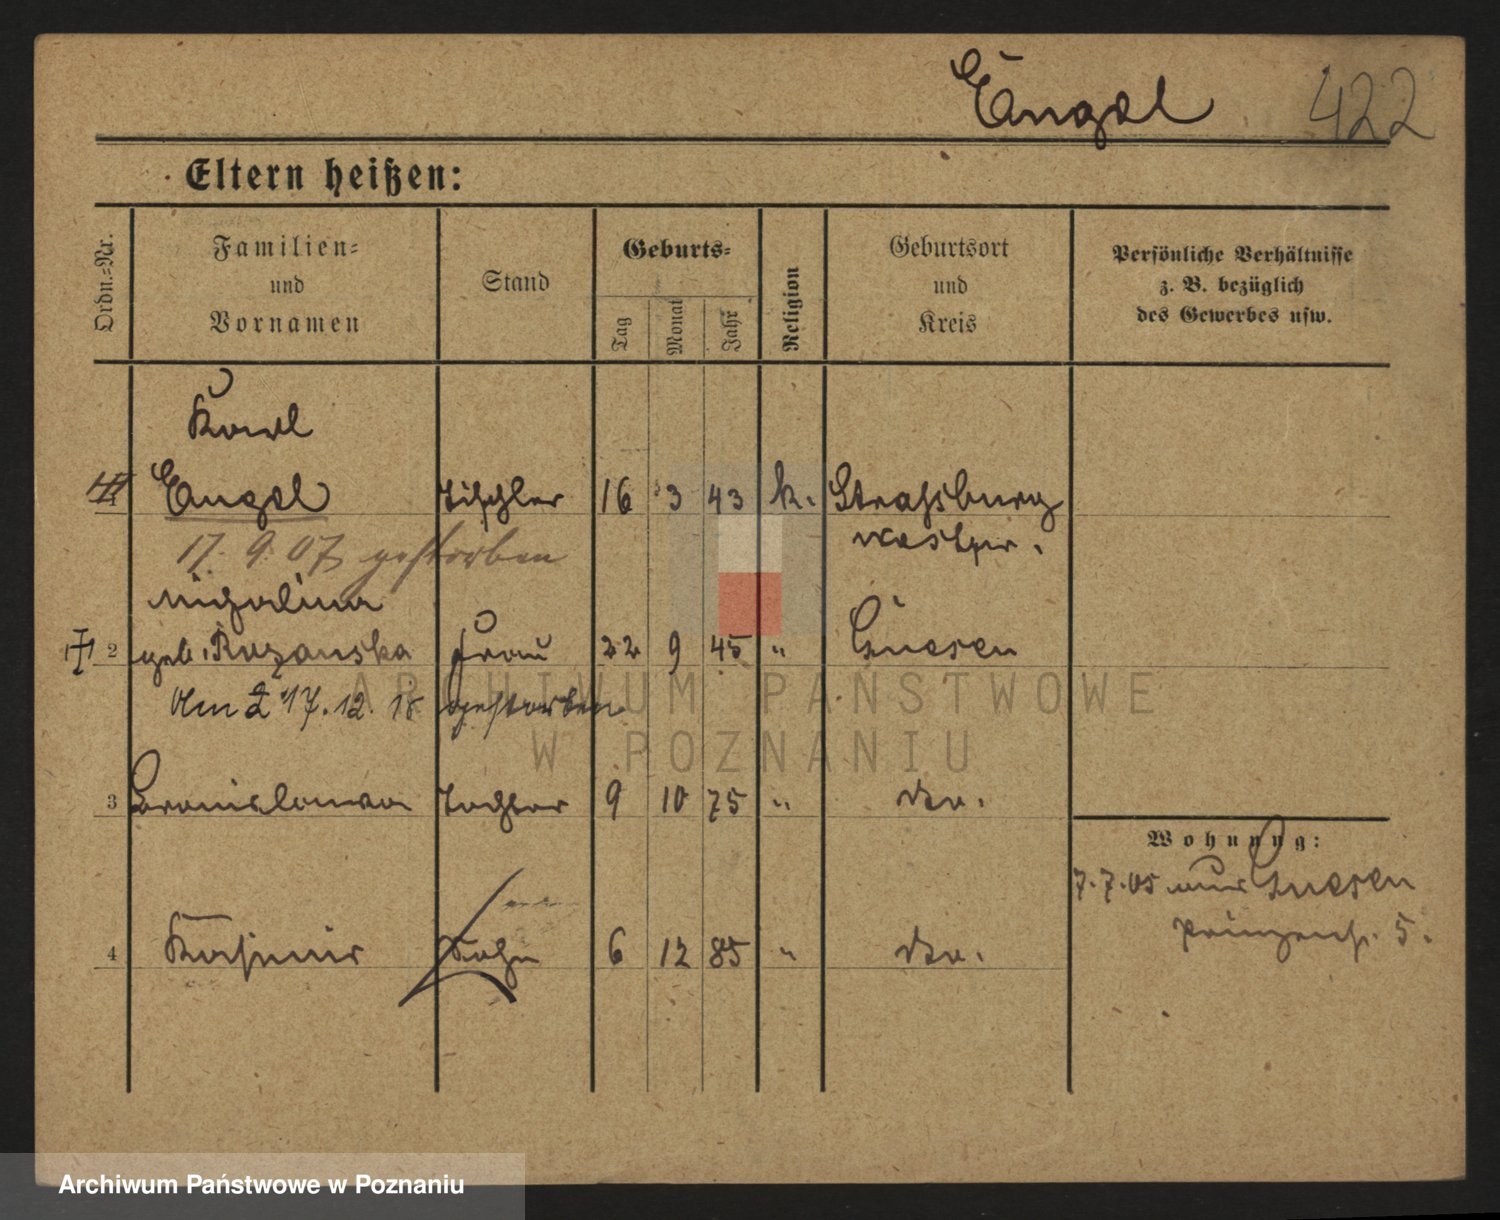 Engel 422
Eltern heißen:
Ordn.=Nr.
Familien=
und
Vornamen
Stand
Geburts=
Tag
Monat
Jahr
Religion
Geburtsort
und
Kreis
Persönliche Verhältnisse
z. B. bezüglich
des Gewerbes usw.
Karl
Engel Tischler 16 3 43 k. Strassburg
17. 9. 07 gestorben westpr.
2 geb. Rozanska Frau 22 9 45 " Gnesen
Am 17. 12. 18 gestorben
3 Bronislawa Tochter 9 10 75 " do.
Wohnung:
7.7.05 aus Gnesen
4 Kasimir Sohn 6 12 85 " do.
5.
ARCHIWUM PAŃSTWOWE
W POZNANIU
Archiwum Państwowe w Poznaniu